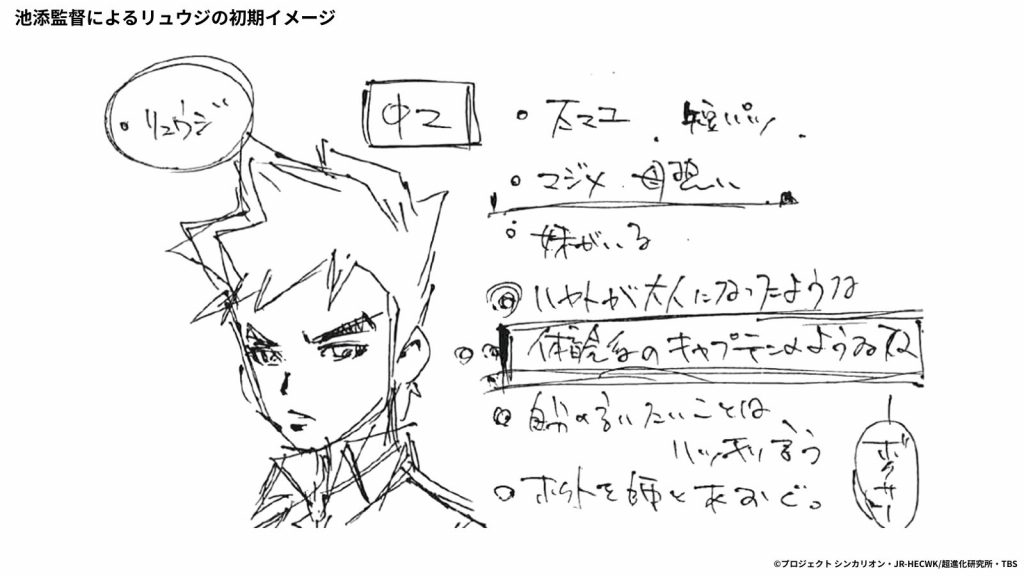 池添監督によるリュウジの初期イメージ
・リュウジ
中二
・太マユ 短パツ
・マジメ
・妹がいる
ハヤトが大人になったような
体験會のキャプテンのような
自分の言いたいことは
ハッキリ言う
ホクトを師とあおぐ。
ボクサー
©プロジェクト シンカリオン・JR-HECWK/超進化研究所・TBS